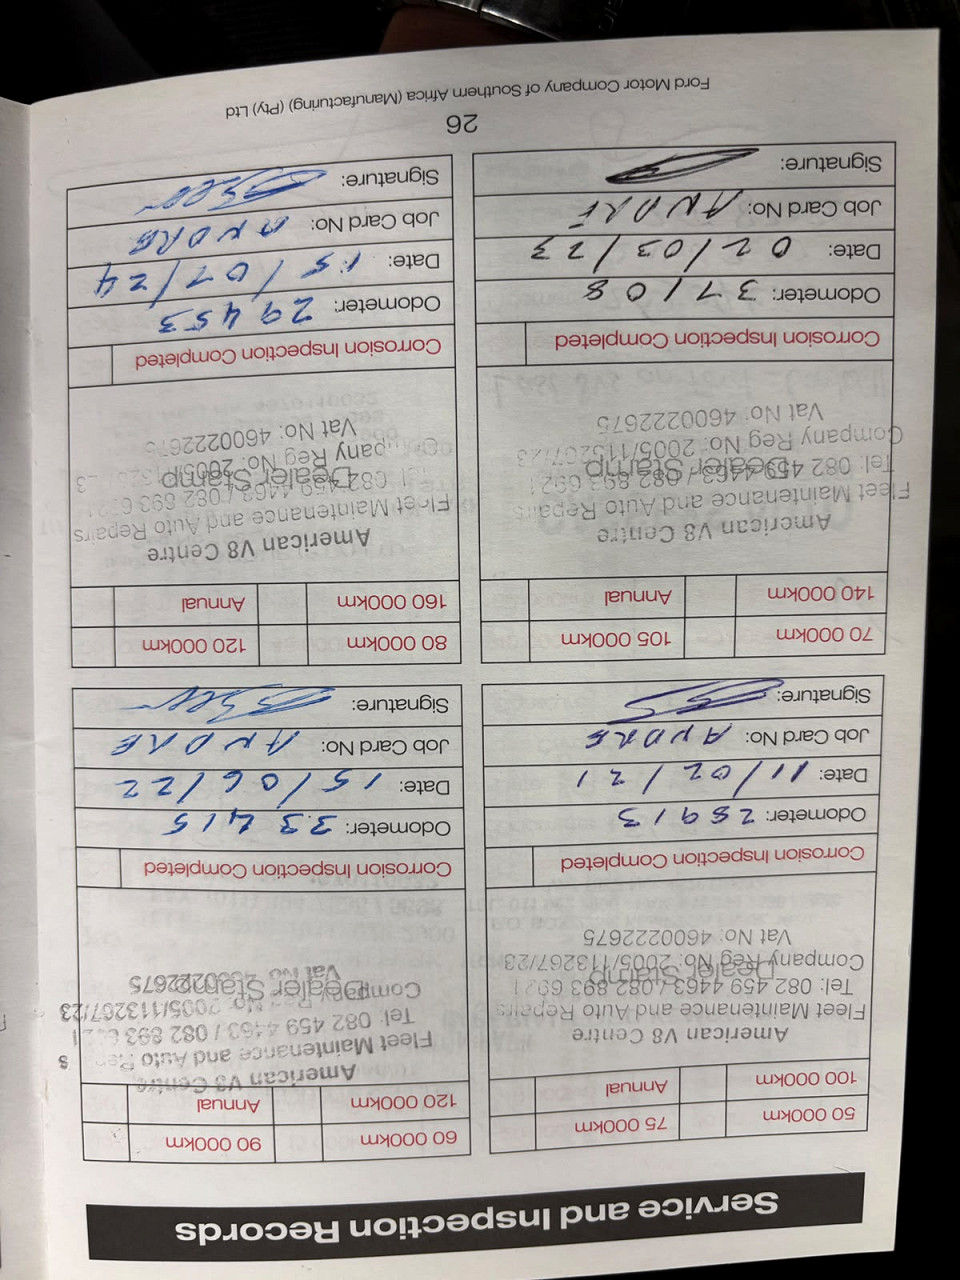 Service and Inspection Records
50 000km 75 000km
100 000km Annual
American V8 Centre
Fleet Maintenance and Auto Repairs
Tel: 082 459 4463 / 082 893 6921
Dealer Stamp
Company Reg No: 2005/113267/23
Vat No: 4600222675
Corrosion Inspection Completed
Odometer: 28913
Date: 11/02/21
Job Card No: ANDRE
Signature:
60 000km 90 000km
120 000km Annual
American V8 Centre
Fleet Maintenance and Auto
Tel: 082 459 4463 / 082 893
Reg No: 2005/113267/23
Dealer Stamp
Vat No: 4600222675
Corrosion Inspection Completed
Odometer: 33415
Date: 15/06/22
Job Card No: ANDRE
Signature:
70 000km 105 000km
140 000km Annual
American V8 Centre
Fleet Maintenance and Auto Repairs
Tel: 082 459 4463 / 082 893 6921
Dealer Stamp
Company Reg No: 2005/113267/23
Vat No: 4600222675
Corrosion Inspection Completed
Odometer: 37108
Date: 02/03/23
Job Card No: ANDRE
Signature:
80 000km 120 000km
160 000km Annual
American V8 Centre
Fleet Maintenance and Auto Repairs
082 459 4463 / 082 893
Dealer Stamp
Reg No: 2005
Vat No: 4600222675
Corrosion Inspection Completed
Odometer: 29453
Date: 15/07/24
Job Card No: ANDRE
Signature:
26
Ford Motor Company of Southern Africa (Manufacturing) (Pty) Ltd